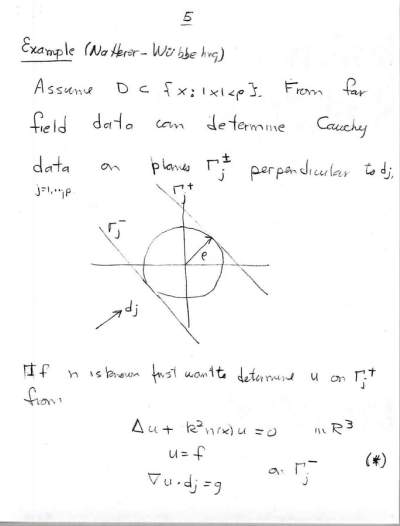 5
Example (Natterer-Wübbeling)
Assume D ⊂ {x: |x|<ρ}. From far
field data can determine Cauchy
data on planes Γj± perpendicular to dj,
j=1,...,p
Γj+
Γj-
ρ
dj
If n is known first want to determine u on Γj+
from:
Δu + k²n(x)u = 0 in R³
u = f
on Γj- (*)
∇u·dj = g